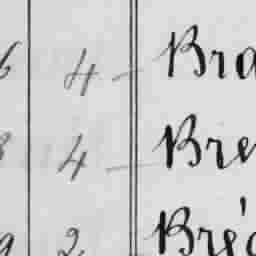 6 4 – Bra
8 4 – Bre
9 2 Bré